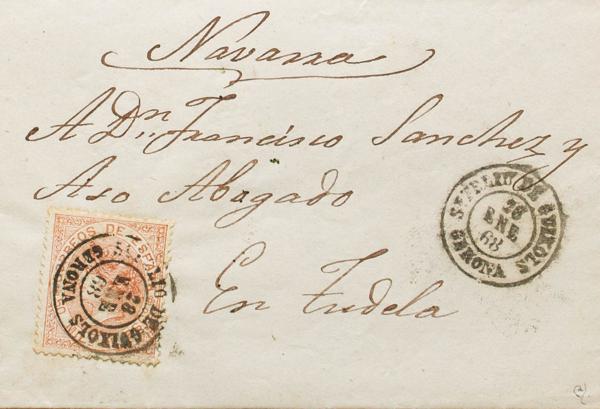 Navarra
A Dn. Francisco Sanchez y
Aso Abogado
En Tudela
S. FELIU DE GUIXOLS
28
ENE
68
GERONA
CORREOS DE ESPAÑA
S. FELIU DE GUIXOLS
28
ENE
68
GERONA